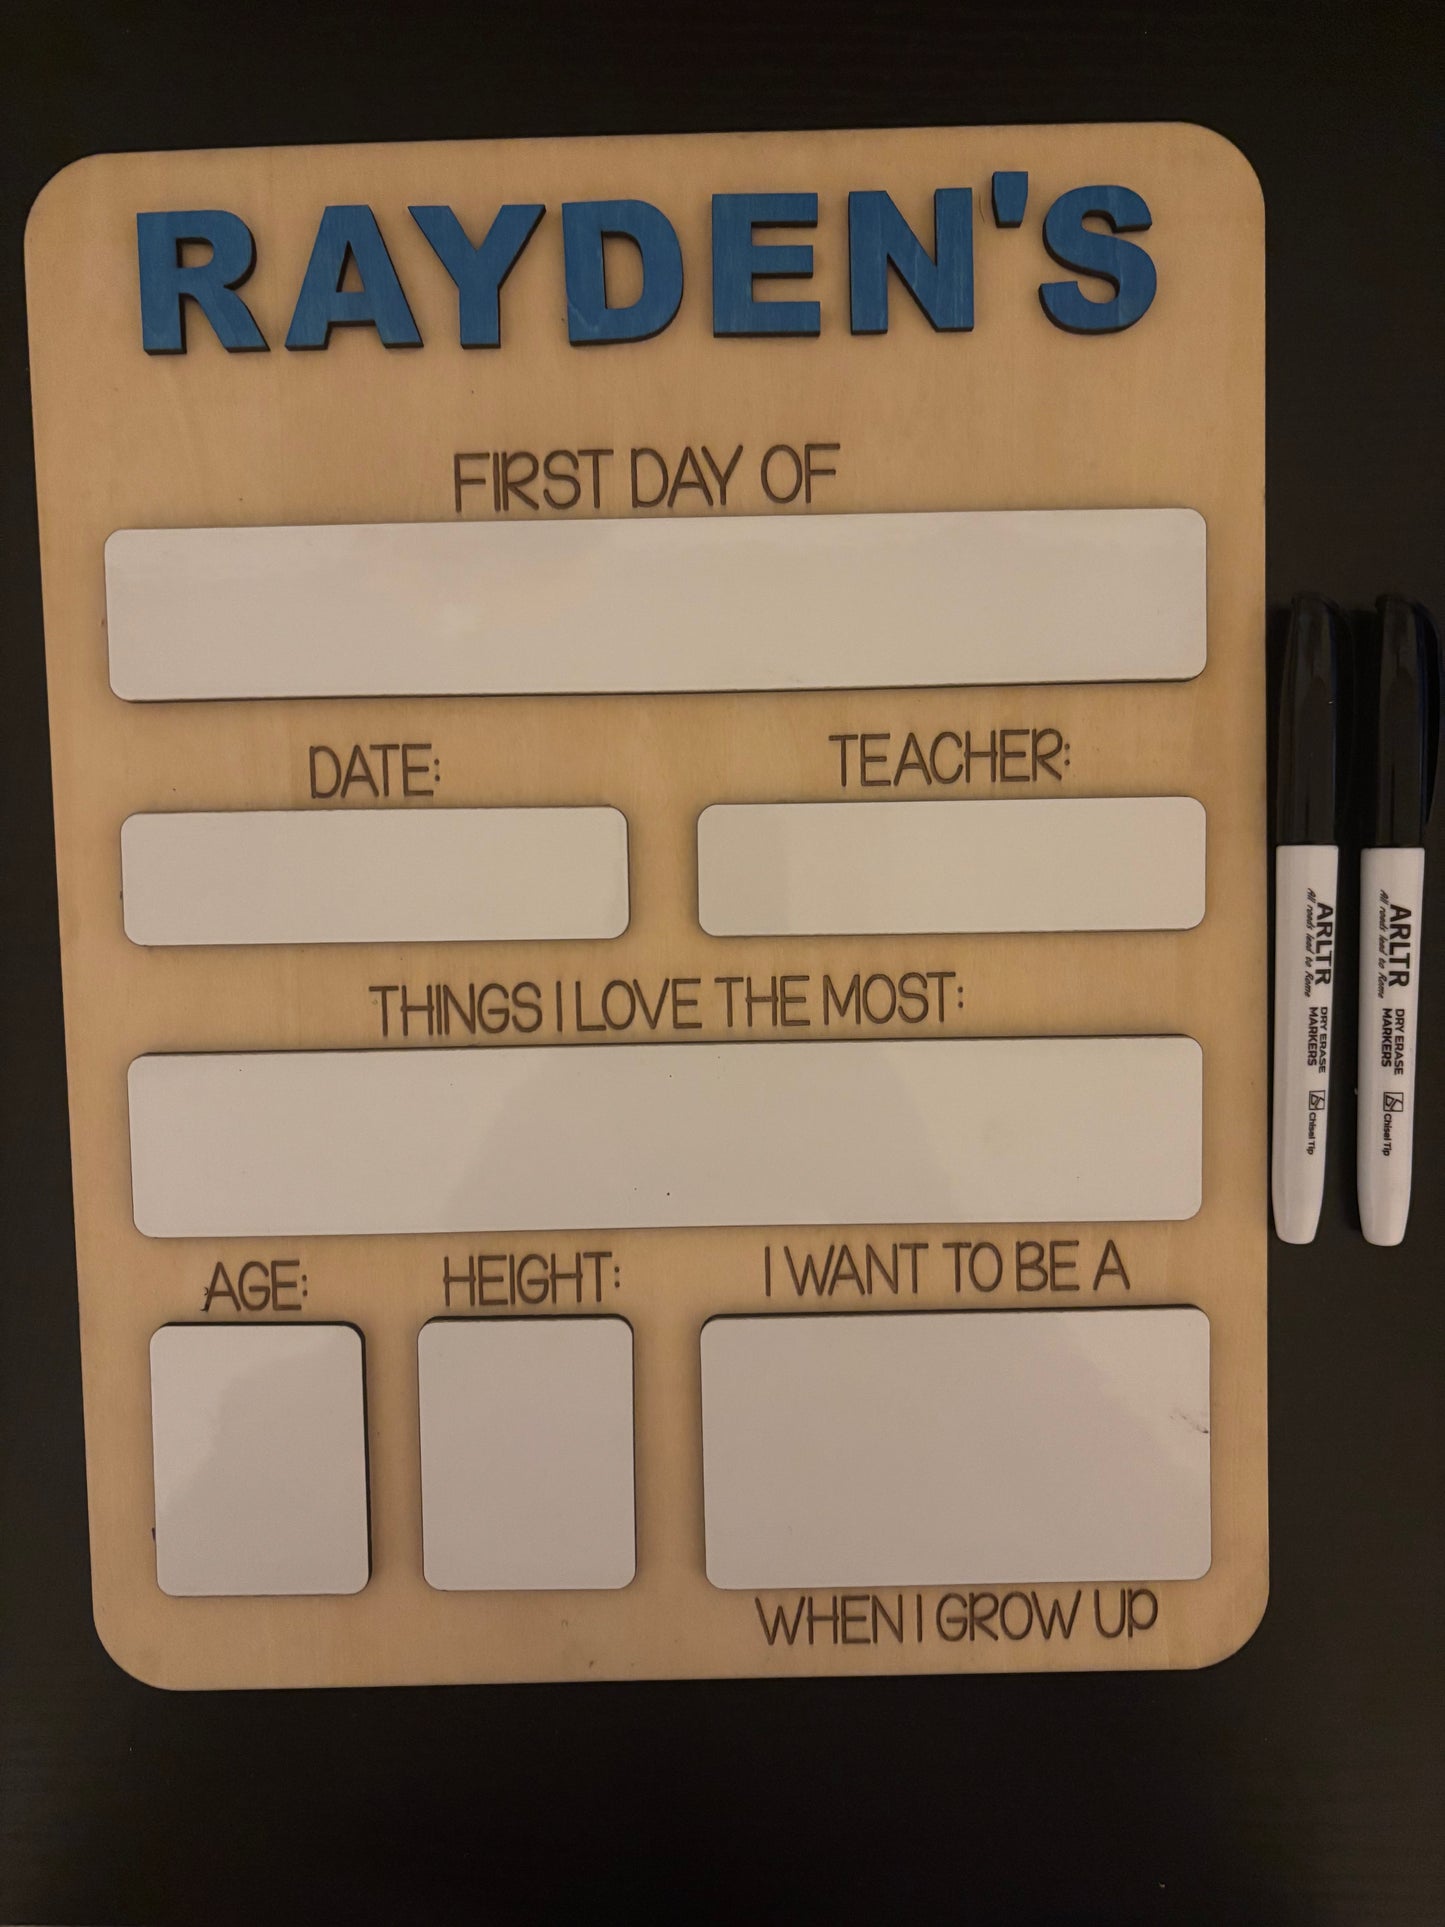 RAYDEN'S
FIRST DAY OF
DATE:
TEACHER:
THINGS I LOVE THE MOST:
AGE:
HEIGHT:
I WANT TO BE A
WHEN I GROW UP
ARLTR
All roads lead to Rome
DRY ERASE
MARKERS
Chisel Tip
ARLTR
All roads lead to Rome
DRY ERASE
MARKERS
Chisel Tip